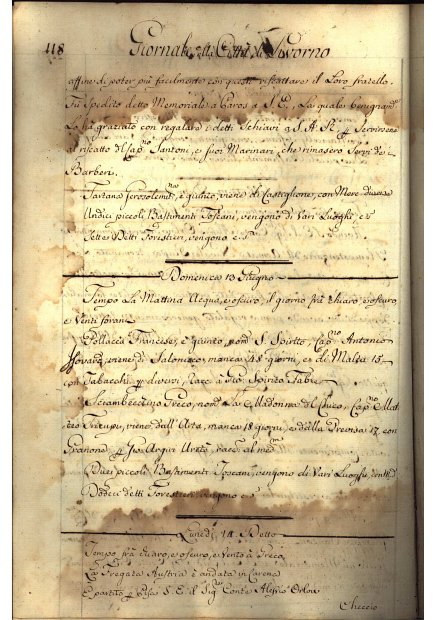 118 Giornale della Città di Livorno
affine di poter più facilmente con questi riscattare il Loro fratello.
Fù spedito detto Memoriale a S. E., La quale benignam.te
Lo hà graziato con regalare i detti Schiavi a S. A. R. p Servirsene
al riscatto del Cap.no Santoni, e suoi Marinari, che rimasero Servi dei
Barberi.
Tartana Gerosolemit.na è quinto, viene di Castiglione, con Merc. diverse
Undici piccoli Bastimenti Toscani, vengono di Vari Luoghi e
Sette Detti Forestieri, vengono
Domenica 13 Giugno
Tempo La Mattina Acqua, e oscuro, il giorno frà chiaro, e oscuro,
e Venti forani
Pollacca Francese, è quinto, nom.a S. Spirito, Cap.no Antonio
viene di Salonicco, manca 48 giorni, e di Malta 15
con Tabacchi p diversi, racc. a Gio. Spirito Fabre
Sciambecchino Greco, nom.a La Madonna del, Cap.no Mat
teo, viene dall' Arta, manca 18 giorni, e dalla Prevesa 17, con
Granone p Gio. Argiri, racc. al med.mo
Dieci piccoli Bastimenti Toscani, vengono di Vari Luoghi, e
Dodeci detti Forestieri, vengono
Lunedì, 14. Detto
Tempo frà chiaro, e oscuro, e Vento à Greco
La Fregata Austria è andata in Carena
È partito p Pisa S. E. il Sig.re Conte Alessio Orlow
Checcio